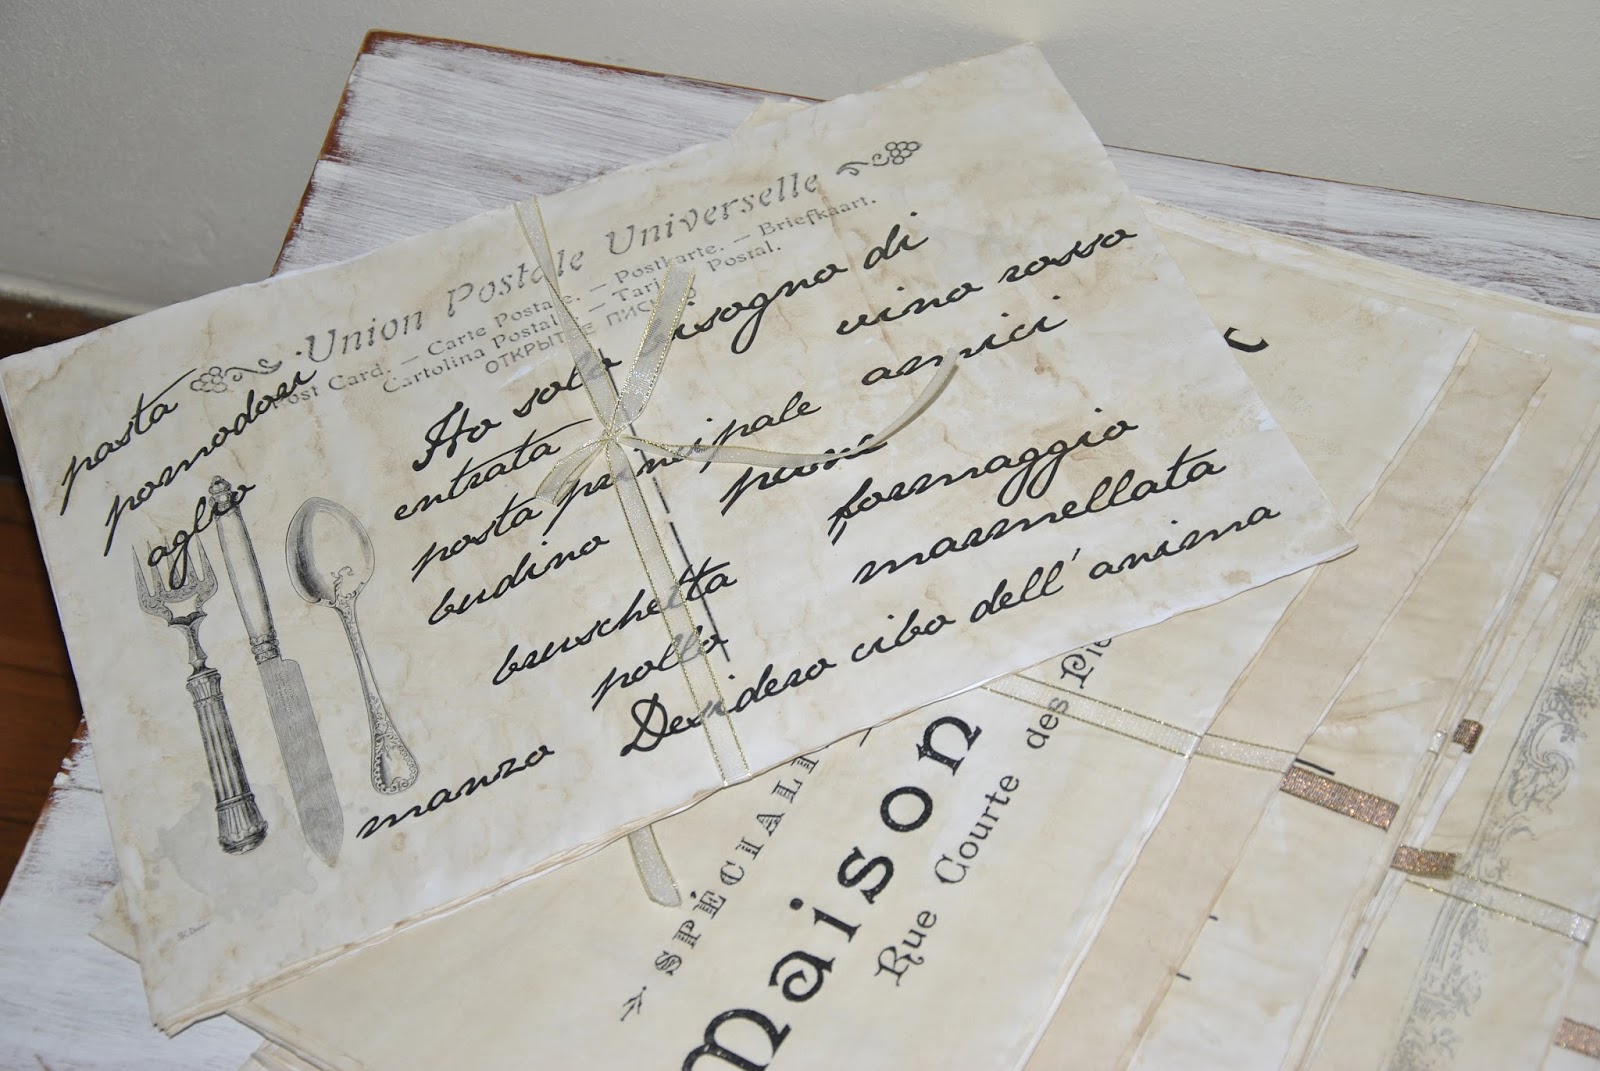 Union Postale Universelle
Post Card. — Carte Postale. — Postkarte. — Briefkaart.
Cartolina Postale. — Postal.
ОТКРЫТОЕ ПИСЬМО
pasta
pomodori
aglio
Ho solo bisogno di
entrata
vino rosso
pasta principale
amici
budino
pane
bruschetta
formaggio
pollo
marmellata
manzo
Desidero cibo dell'anima
SPÉCIALI
Maison
Rue Courte des